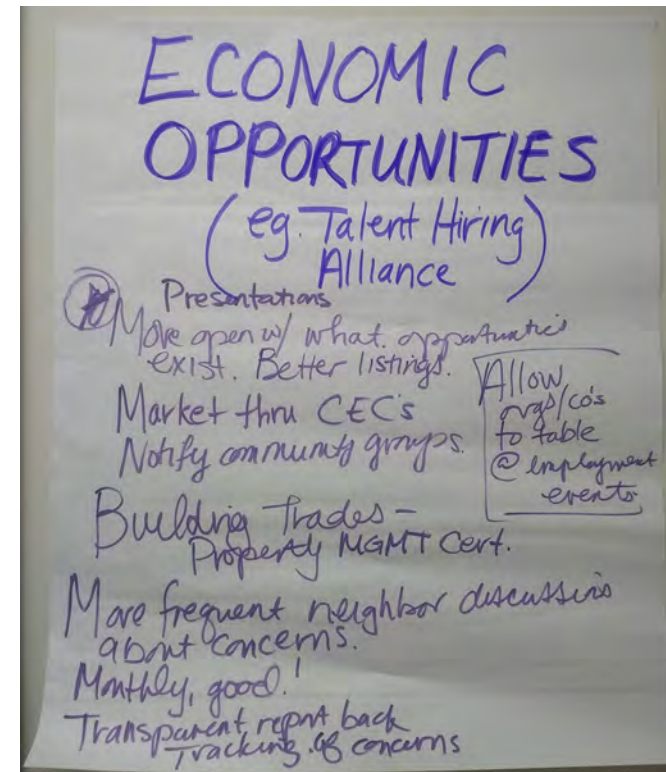 ECONOMIC
OPPORTUNITIES
(eg. Talent Hiring
Alliance)
Presentations
More open w/ what opportunities
exist. Better listings.
Market thru CEC's
Notify community groups.
Allow
orgs/co's
to table
@ employment
events
Building Trades –
Property MGMT Cert.
More frequent neighbor discussions
about concerns.
Monthly, good!
Transparent report back
Tracking of concerns